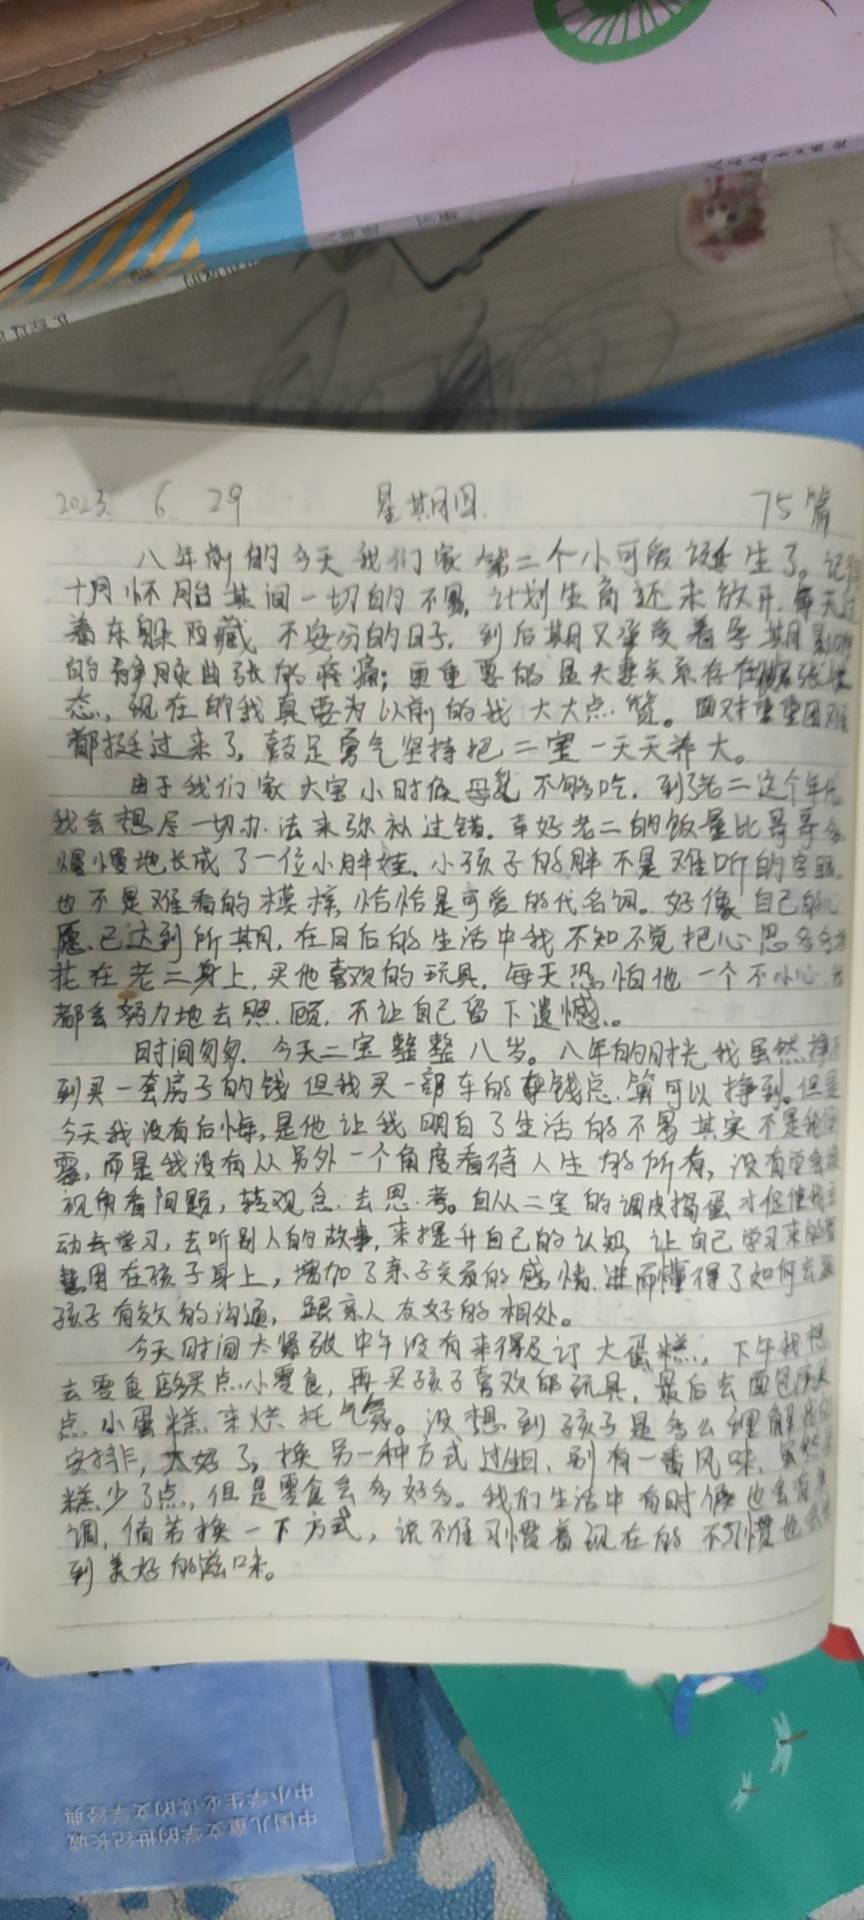 2023. 6 29 星期四. 75篇
八年前的今天我们家第二个小可爱诞生了。记得
十月怀胎其间一切的不易, 计划生育还未放开, 每天过
着东躲西藏, 不安分的日子. 到后期又承受着孕期影响
的静脉曲张的疼痛; 更重要的是夫妻关系存在紧张状
态, 现在的我真要为以前的我大大点赞。面对重重困难
都挺过来了, 鼓足勇气坚持把二宝一天天养大。
由于我们家大宝小时候母乳不够吃. 到了老二这个年代
我会想尽一切办法来弥补过错. 幸好老二的饭量比哥哥多
慢慢地长成了一位小胖娃. 小孩子的胖不是难听的字眼,
也不是难看的模样, 恰恰是可爱的代名词。好像自己的心
愿已达到所期, 在日后的生活中我不知不觉把心思多多
花在老二身上, 买他喜欢的玩具. 每天恐怕他一个不小心
都会努力地去照顾, 不让自己留下遗憾。
时间匆匆. 今天二宝整整八岁。八年的时光我虽然挣不
到买一套房子的钱但我买一部车的钱总算可以挣到。但是
今天我没有后悔, 是他让我明白了生活的不易其实不是
而是我没有从另外一个角度看待人生的所有, 没有
视角看问题, 转观念去思考。自从二宝的调皮捣蛋才促使我主
动去学习, 去听别人的故事, 来提升自己的认知, 让自己学习来的智
慧用在孩子身上, 增加了亲子关系的感情. 进而懂得了如何去跟
孩子有效的沟通, 跟家人友好的相处。
今天时间太紧张中午没有来得及订大蛋糕, 下午我想
去零食店多买点小零食, 再买孩子喜欢的玩具, 最后去面包店买
点小蛋糕来烘托气氛。没想到孩子是多么理解我的
安排, 太好了, 换另一种方式过生日, 别有一番风味, 虽然蛋
糕少了点, 但是零食会多好多。我们生活中有时候也会有
调, 倘若换一下方式, 说不准习惯着现在的不习惯也会
到美好的滋味。
中国儿童文学的世纪长城
中小学生必读的文学经典